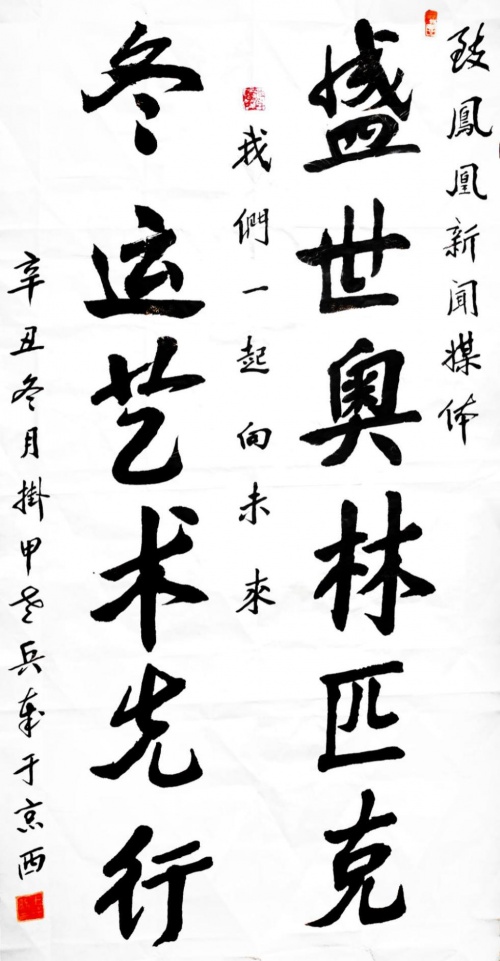 致鳳凰新聞媒体
盛世奥林匹克
我們一起向未來
冬运艺术先行
辛丑冬月掛甲老兵奉于京西